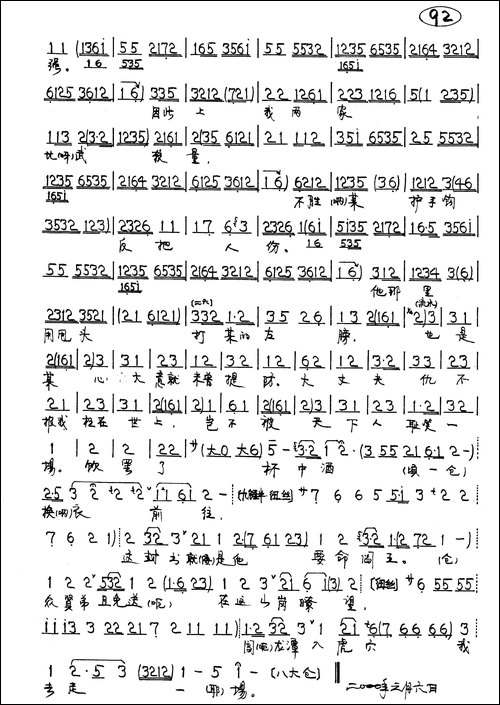 92
1 1 (1361̇) | 55 2172 | 165 3561̇ | 55 5532 | 1235 6535 | 2164 3212 |
强。 16 535 1651̇
6125 3612 | 1 6) | 335 | 3212 (721) | 22 1261 | 223 1216 | 5(1 235) |
因此 上 我 两 家
113 2(3·2 | 1235) 2161 | 2(35 6121 | 21 112 | 351̇ 6535 | 25 5532 |
比(呀)武 较 量。
1235 6535 | 2164 3212 | 6125 3612 | 1 6) | 6212 | 1235 (36) | 1212 3(46 |
1651̇ 不胜 (啊)某 护手钩
3532 123) | 2326 11 | 17 63 | 2326 1(61̇ | 51̇35 2172 | 16·5 3561̇ |
反 把 人 伤。 16 535
55 5532 | 1235 6535 | 2164 3212 | 6125 3612 | 1 6) | 312 | 1234 3(6) |
1651̇ 他那 里
2312 3521 | (21 6121) | 332 1·2 | 35 26 | 13 2(161 | 2)3 | 31 |
用甩头 打 某的 左 膀。 (流水) 也 是
2(161 | 2)3 | 31 | 23 | 12 | 32 | 12 | 62 | 12 | 3·2 | 33 | 23 |
某 心 大 意就 未曾 提 防。 大 丈 夫 仇 不
21 | 23 | 31 | 2(161 | 2)1 | 61 | 2(161 | 2)3 | 21 | 23 | 1·2 | 32 |
报我 枉在 世 上， 岂 不 被 天 下 人 耻笑 一
1 | 2 | 2 | 22 | サ(大0 大6) 5 - 3·2 1 2·(3 55 21 61 2 -)
场。 饮 罢 了 杯 中 酒 (顷 一 仓)
2·5 3 2 2 2 1̇ 1̇ 61̇ 2 - | [扭丝] サ7 6 6 5 51̇ 3 2 2
换(啊)衣 前 往。
7 6 2 1) 2 32 3 21 1 2·(7 61 23) 1 2 3·2 1·2 72 1 -)
这 封 书 就(像)是他 要 命 阎 王。 (仓)
1 2 2 532 1 2 (1·6 23) 1 2 3 21 6 1(3) 2 | [扭丝] サ6 55 55
众贤弟 且 免送(呃) 在 这 山 岗 瞭 望，
1̇1̇1̇3 3 22 21 7 2 11 11) | 1·2 32 3 1 21 6(7 66 66) 3
闯(呃)龙潭 入 虎 穴 我
1 2·5 3 (3212) 1 - 5 1̇ - (八大仓) ‖
去 走 一 (哪) 场。 二000年元月六日